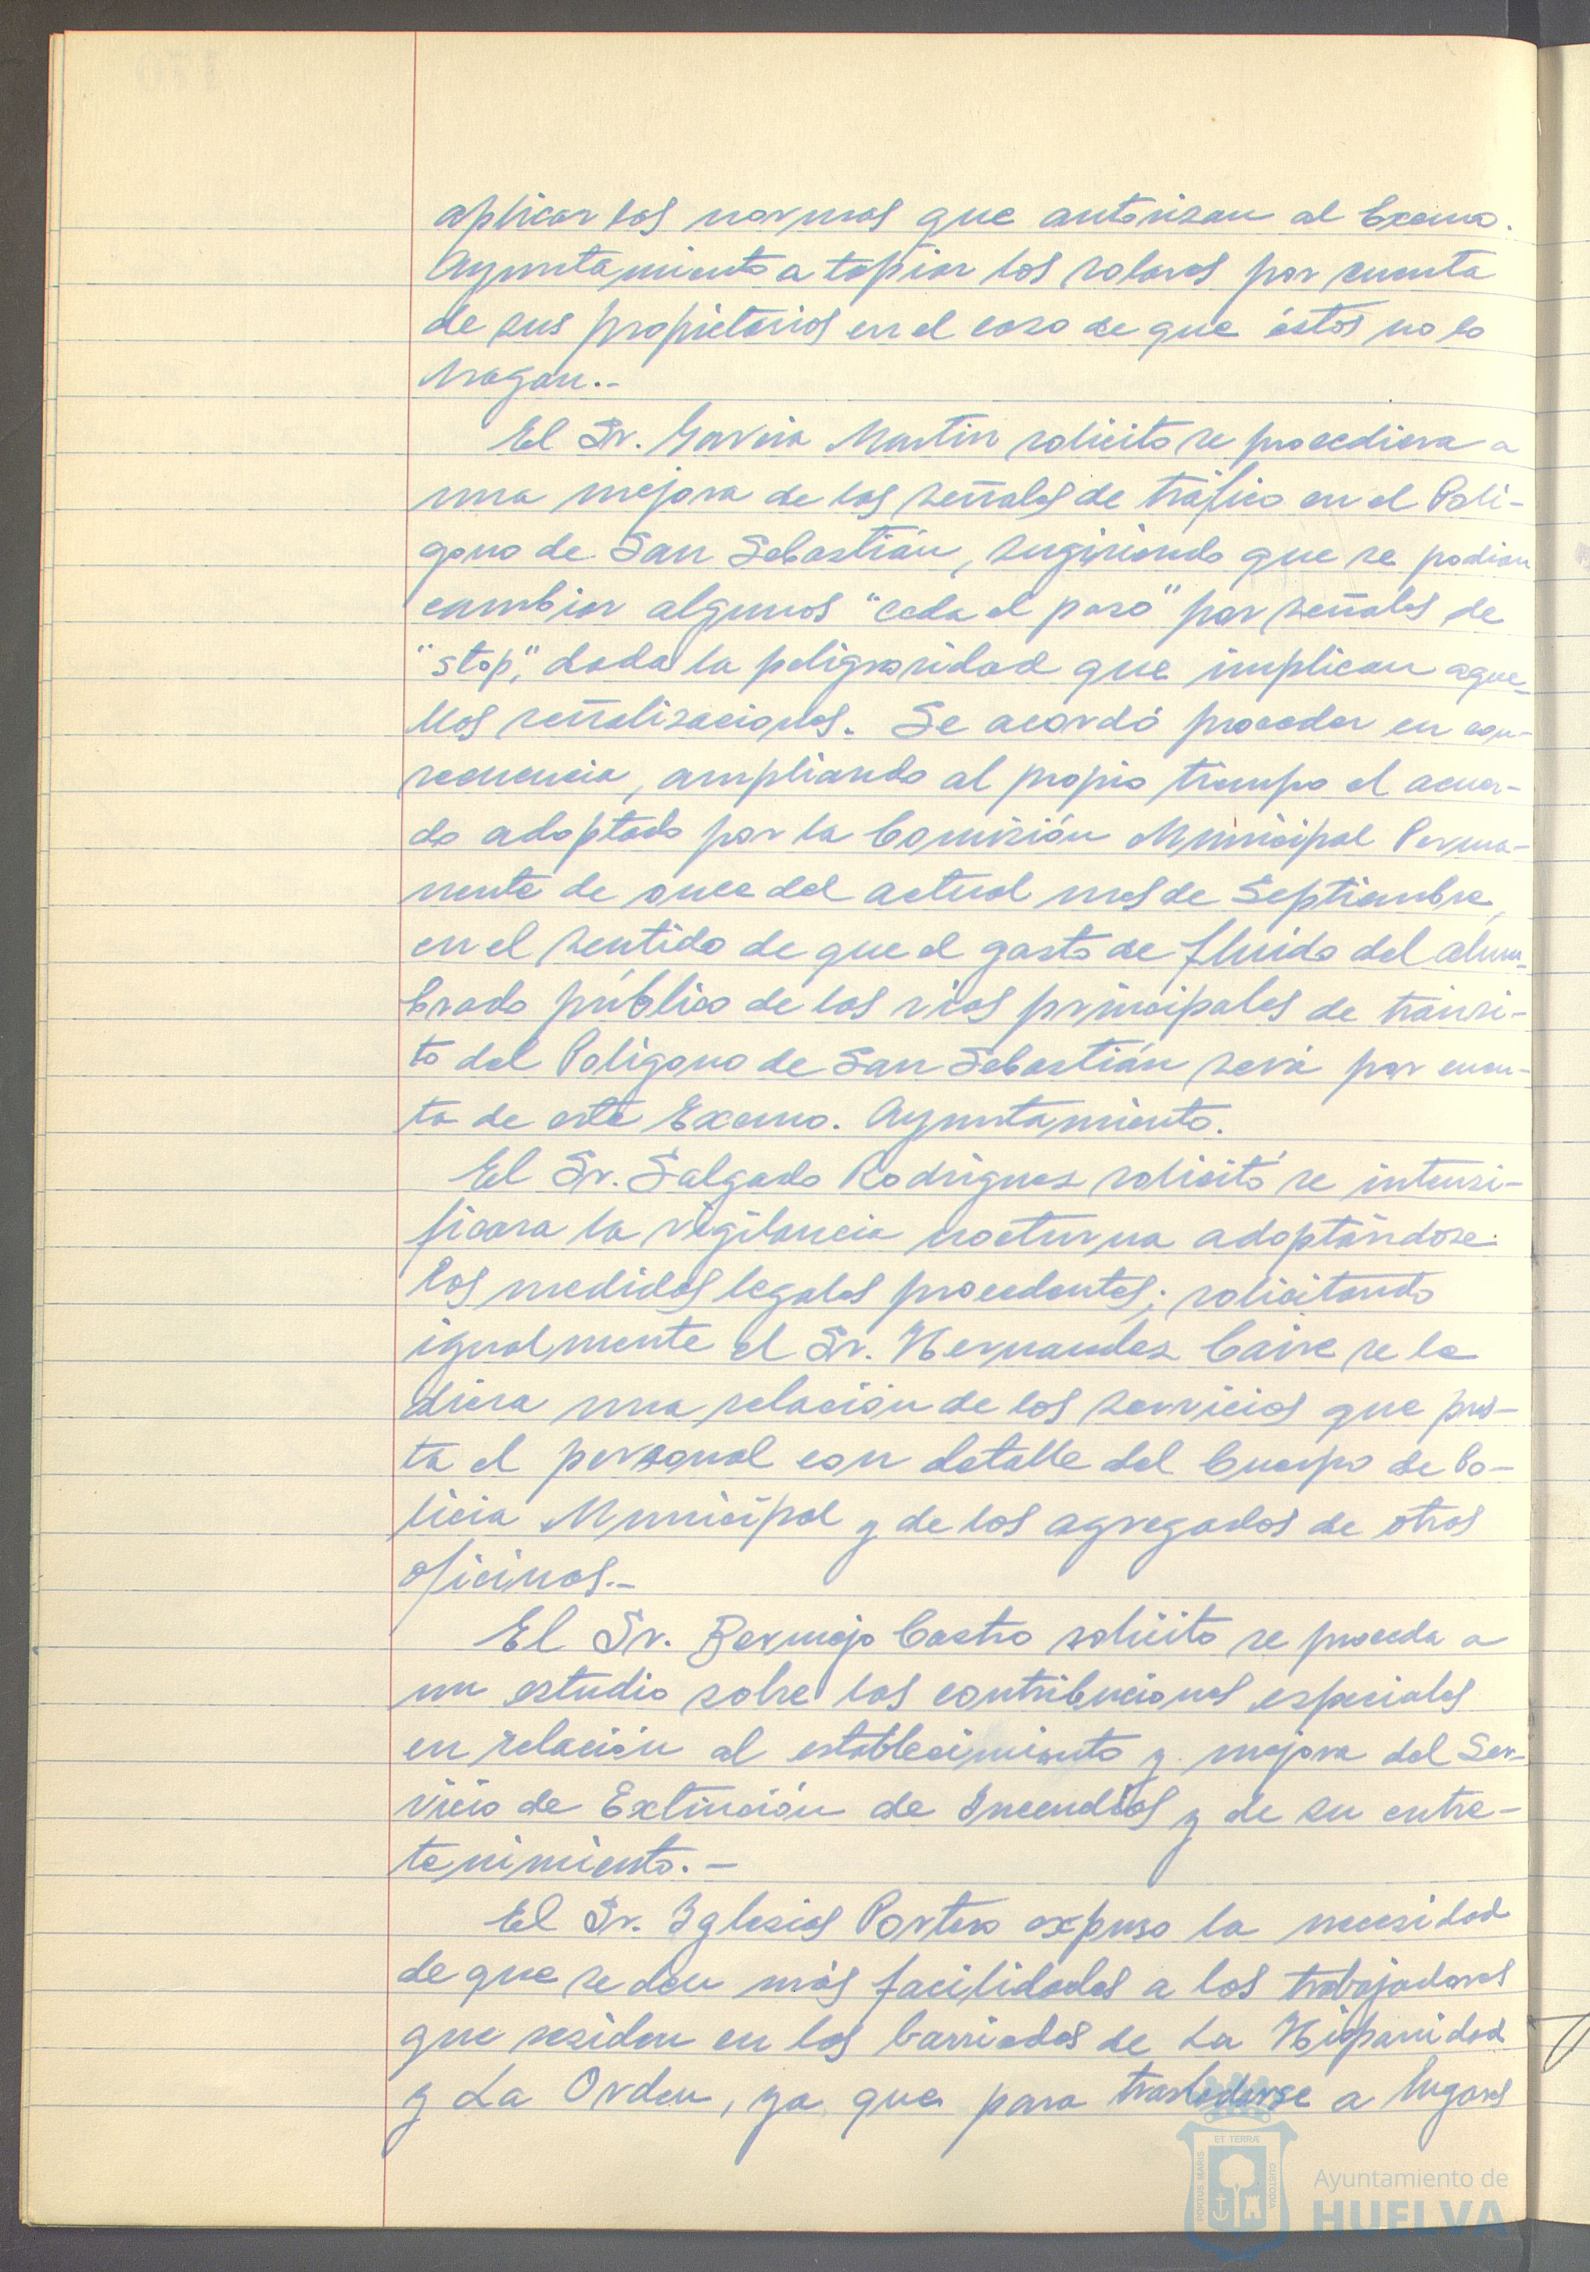 aplicar las normas que autorizan al Excmo.
Ayuntamiento a tapiar los solares por cuenta
de sus propietarios en el caso de que éstos no lo
hagan.-
El Sr. García Martin solicito se procediera a
una mejora de las señales de tráfico en el Polí-
gono de San Sebastián, sugiriendo que se podian
cambiar algunos "ceda el paso" por señales de
"stop", dada la peligrosidad que implican aque-
llas señalizaciones. Se acordó proceder en con-
secuencia, ampliando al propio tiempo el acuer-
do adoptado por la Comisión Municipal Perma-
nente de once del actual mes de Septiembre,
en el sentido de que el gasto de fluido del alum-
brado público de las vias principales de tránsi-
to del Poligono de San Sebastián será por cuen-
ta de este Excmo. Ayuntamiento.
El Sr. Salgado Rodriguez solicitó se intensi-
ficara la vigilancia nocturna adoptándose
las medidas legales procedentes; solicitando
igualmente el Sr. Hernandez Caire se le
diera una relación de los servicios que pres-
ta el personal con detalle del Cuerpo de Po-
licia Municipal y de los agregados de otras
oficinas.-
El Sr. Bermejo Castro solicito se proceda a
un estudio sobre las contribuciones especiales
en relación al establecimiento y mejora del Ser-
vicio de Extinción de Incendios y de su entre-
tenimiento.-
El Sr. Iglesias Portero expuso la necesidad
de que se den más facilidades a los trabajadores
que residen en las barriadas de La Hispanidad
y La Orden, ya que para trasladarse a lugares
PORTUS MARIS ET TERRÆ CUSTODIA
Ayuntamiento de
HUELVA